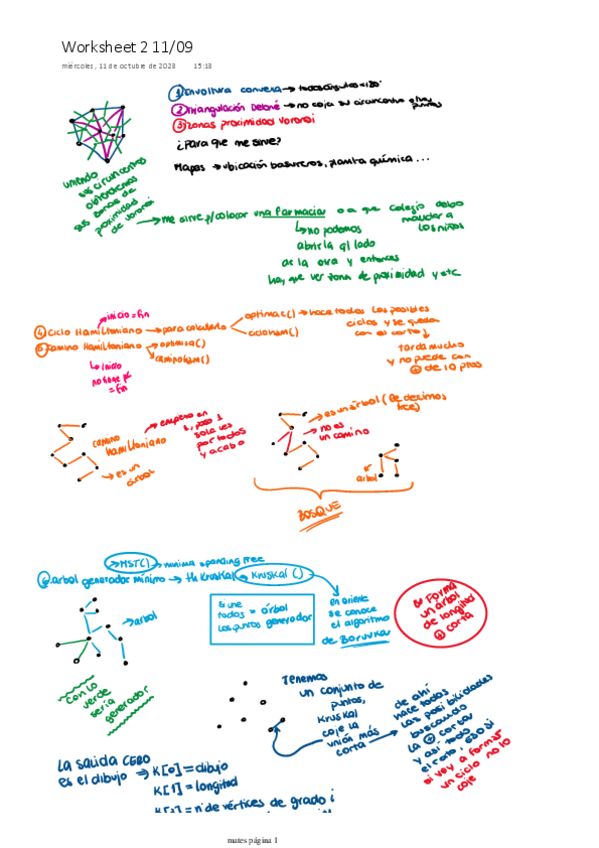 Worksheet 2 11/09
miércoles, 11 de octubre de 2023 15:13
① Envoltura convexa → todos ángulos <180°
② Triangulación Deloné → no coja su circuncentro otros puntos
③ Zonas proximidad Voronoi
¿Para que me sirve?
Mapas → ubicación basureros, planta química...
uniendo
sus circuncentros
obtendremos
sus zonas de
proximidad
de voronoi
→ me sirve p/ colocar una farmacia o a que colegio debo
mandar a
los niños
↳ no podemos
abrir la al lado
de la otra y entonces
hay que ver zona de proximidad y etc
inicio = fin
④ Ciclo Hamiltoniano → para calcularlo
optimac() → hace todos los posibles
ciclos y se queda
con el corto
cicloham()
tarda mucho
y no puede con
⊕ de 10 ptos
⑤ Camino Hamiltoniano → optimisa()
caminoham()
↳ inicio
no tiene pq
= fin
camino
hamiltoniano
→ empezo en
1, paso 1
sola vez
por todos
y acabo
→ es un
árbol
→ es un árbol (Be decimos
tree)
→ no es
un camino
arbol
BOSQUE
→ MST() → minima spanding tree
⑥ arbol generador mínimo → th Kruskal → Kruskal()
→ arbol
Si une
todos = árbol
los puntos generador
en oriente
se conoce
el algoritmo
de Boruvka
& Forma
un arbol
de longitud
⊕ corta
con lo
verde
seria
generador
Tenemos
un conjunto de
puntos,
Kruskal
coje la
unión más
corta
de ahí
hace todas
las posibilidades
buscando
la ⊕ corta
y así todo
el rato. eso si
si voy a formar
un ciclo no lo
coje
La salida CERO
es el dibujo → K[0] = dibujo
K[1] = longitud
K[2] = nº de vértices de grado i
mates página 1